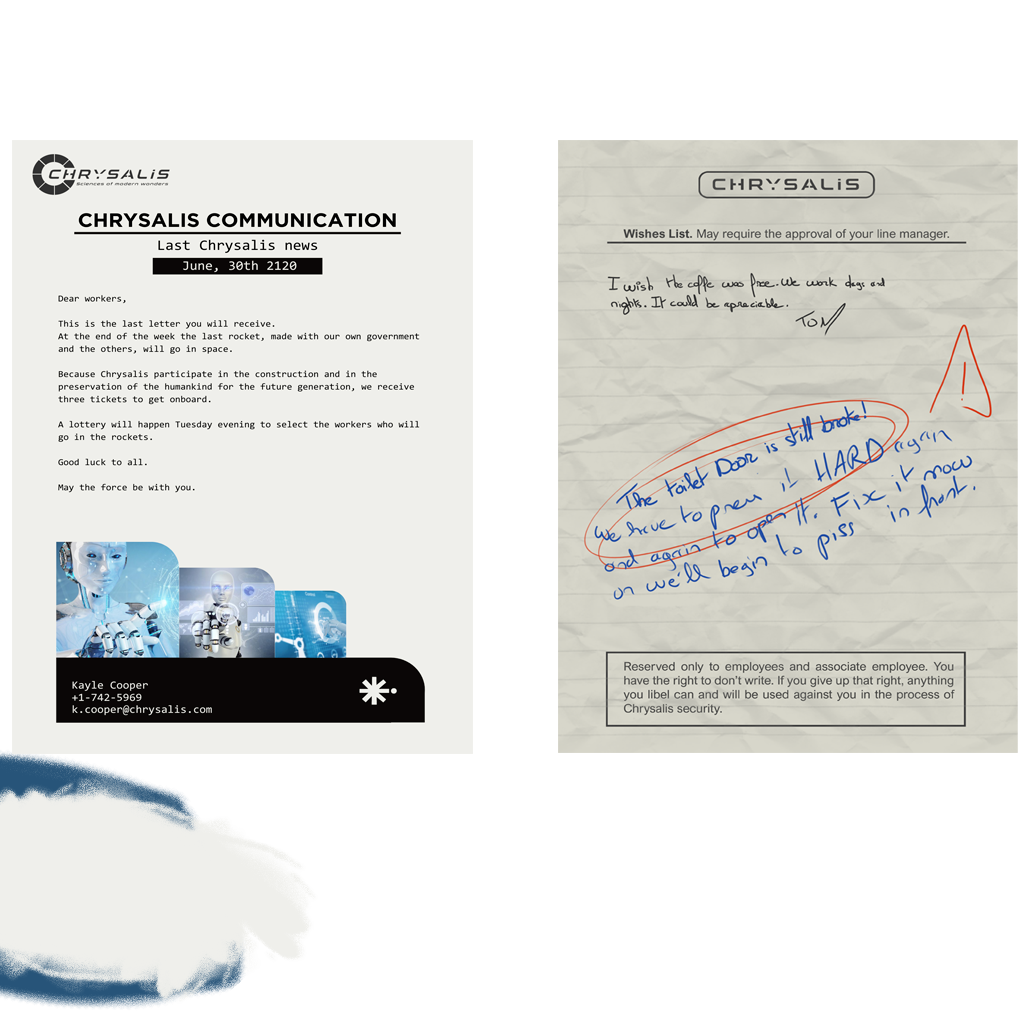 CHRYSALIS
Sciences of modern wonders
CHRYSALIS COMMUNICATION
Last Chrysalis news
June, 30th 2120
Dear workers,
This is the last letter you will receive.
At the end of the week the last rocket, made with our own government
and the others, will go in space.
Because Chrysalis participate in the construction and in the
preservation of the humankind for the future generation, we receive
three tickets to get onboard.
A lottery will happen Tuesday evening to select the workers who will
go in the rockets.
Good luck to all.
May the force be with you.
Kayle Cooper
+1-742-5969
k.cooper@chrysalis.com
CHRYSALIS
Wishes List. May require the approval of your line manager.
I wish the coffe was free. We work days and
nights. It could be apreciable.
TOM
The toilet Door is still broke!
We have to press it HARD again
and again to open it. Fix it now
or we'll begin to piss in front.
Reserved only to employees and associate employee. You
have the right to don't write. If you give up that right, anything
you libel can and will be used against you in the process of
Chrysalis security.